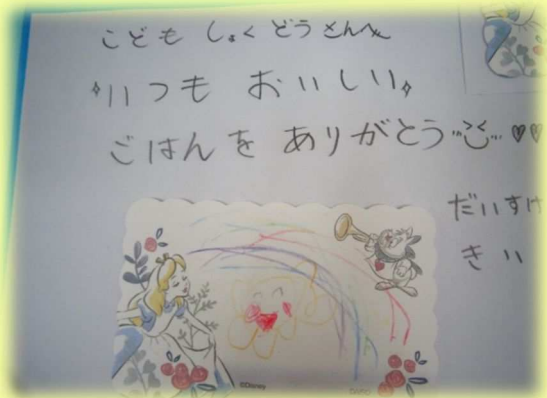 こどもしょくどうさんへ
いつも おいしい
ごはんを ありがとう
だいすけ
きい
©Disney